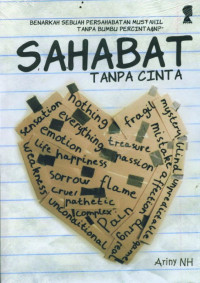 BENARKAH SEBUAH PERSAHABATAN MUSTAHIL
TANPA BUMBU PERCINTAAN?
SAHABAT
TANPA CINTA
nothing
fragile
mystery
sensation
everything
treasure
mistake
blind
emotion
passion
affection
life happiness
weakness
sorrow
flame
cruel
pathetic
complex
pain
drug
unconditional
Ariny NH